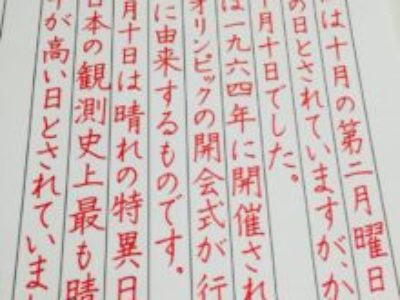 は十月の第二月曜日
の日とされていますが、か
月十日でした。
は一九六四年に開催され
オリンピックの開会式が行
に由来するものです。
月十日は晴れの特異日
日本の観測史上最も晴
が高い日とされていま